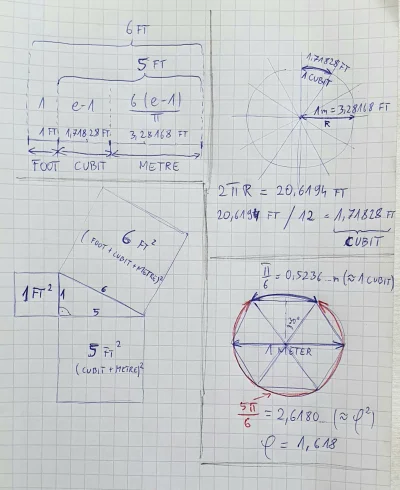 6 FT
5 FT
1
e-1
6(e-1)
π
1 FT
1,71828 FT
3,28168 FT
FOOT
CUBIT
METRE
1,71828 FT
1 CUBIT
1m = 3,28168 FT
R
2πR = 20,6194 FT
20,6194 FT / 12 = 1,71828 FT
CUBIT
6 FT²
(FOOT+CUBIT+METRE)²
1 FT²
1
6
5
5 FT²
(CUBIT+METRE)²
π
6
= 0,5236...m (≈1 CUBIT)
1 METER
5π
6
= 2,6180... (≈ φ²)
φ = 1,618